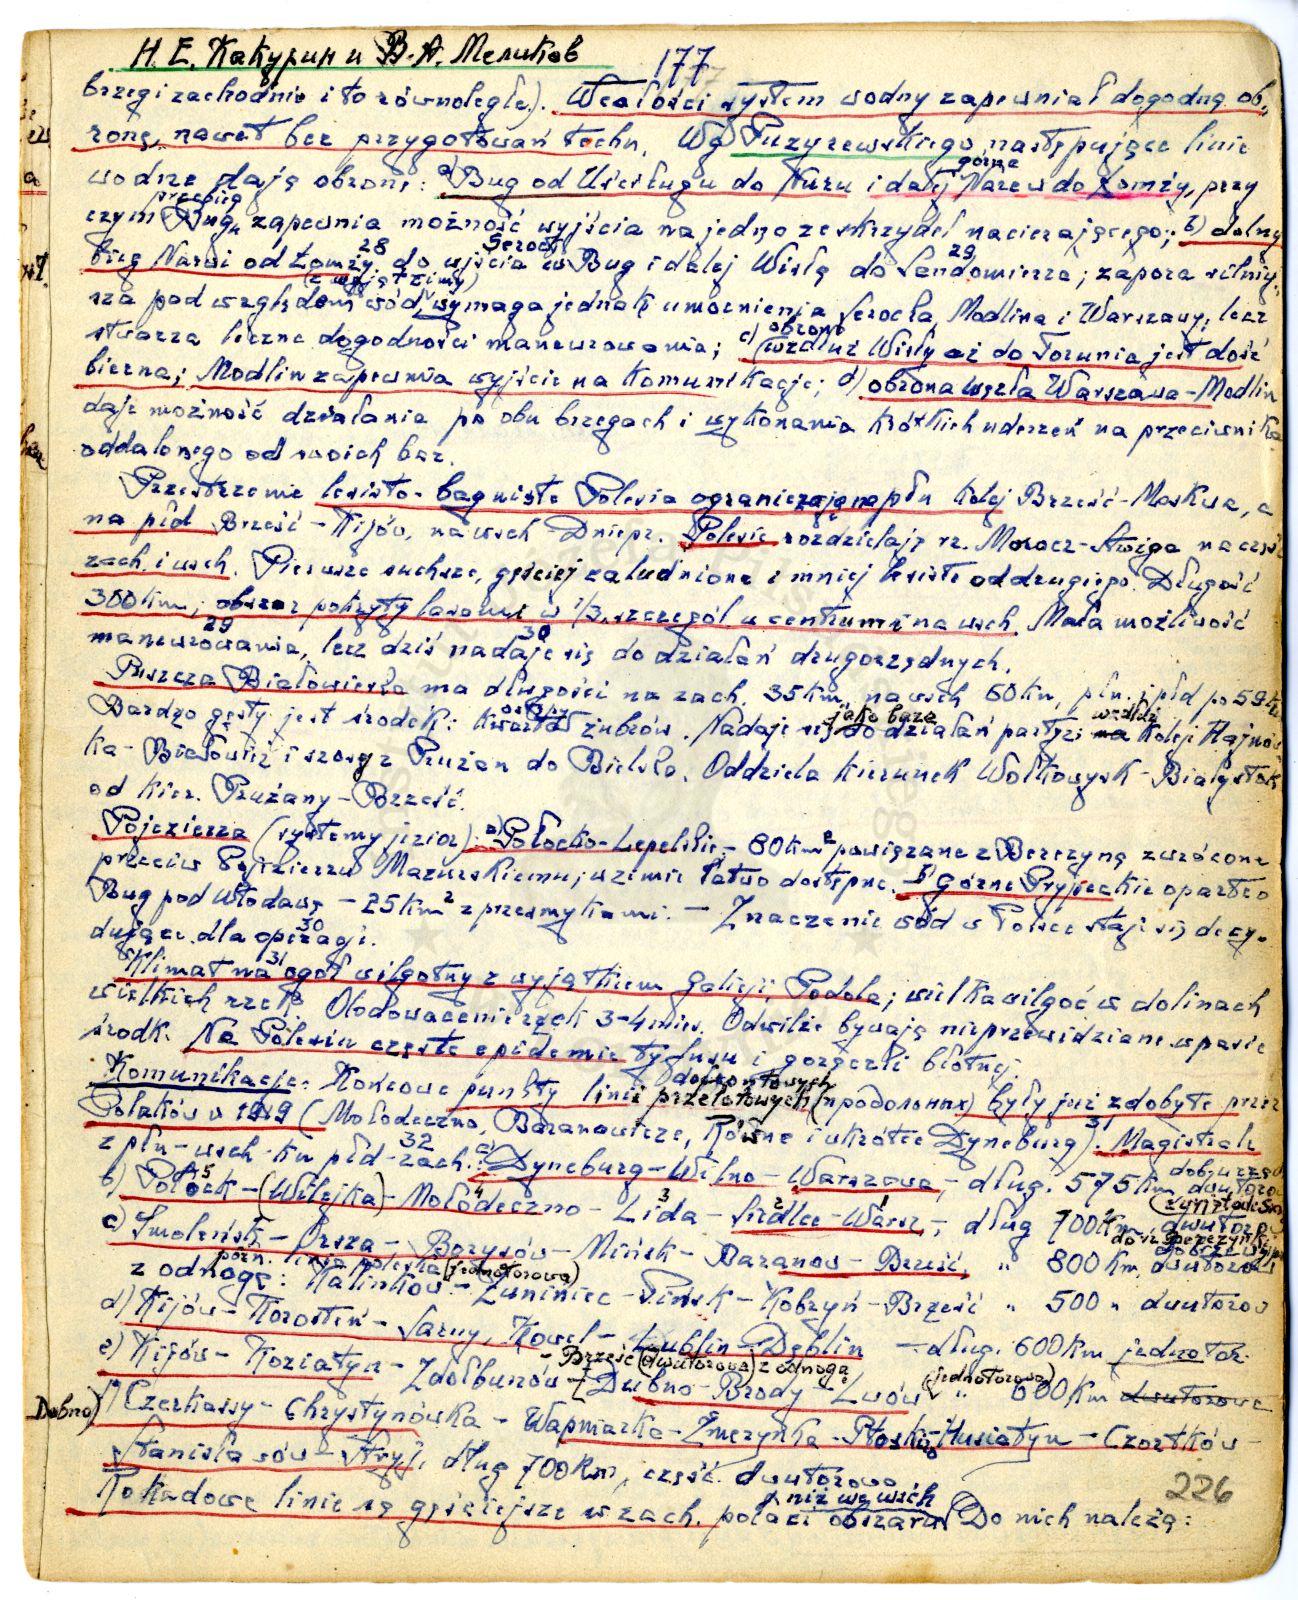 Н. Е. Какурин и В. А. Меликов
177
brzegi zachodnie i to równoległe). W całości system wodny zapewniał dogodną ob-
ronę, nawet bez przygotowań techn. Wg Puzyrewskiego następujące linie
wodne dają obronę: a) Bug od Uściługu do Nuru i dalej górna Narew do Łomży, przy
czym przebieg Bugu zapewnia możność wyjścia na jedno ze skrzydeł nacierającego; b) dolny
bieg Narwi od Łomży 28 do ujścia w Bug i dalej Wisłę do Sandomierza; 29 zapora silniej-
sza pod względem wód (z wyjąt. zimy), wymaga jednak umocnienia Serocka, Modlina i Warszawy, lecz
stwarza liczne dogodności manewrowania; c) obrona wzdłuż Wisły aż do Torunia jest dość
bierna; Modlin zapewnia wyjście na komunikacje; d) obrona węzła Warszawa-Modlin
daje możność działania po obu brzegach i wykonania krótkich uderzeń na przeciwnika
oddalonego od swoich baz.
Przestrzenie lesisto-bagniste Polesia ograniczają na płn kolej Brześć-Moskwa, a
na płd Brześć-Kijów, na wsch Dniepr. Polesie rozdzielają rz. Morocz-Stwiga na część
zach. i wsch. Pierwsze suchsze, gęściej zaludnione i mniej lesiste od drugiego. Długość
300 km; obszar pokryty lasami w 1/3, szczegół w centrum i na wsch. Mała możliwość
manewrowania, 29 lecz dziś nadaje się 30 do działań drugorzędnych.
Puszcza Białowieska ma długości na zach. 35 km, na wsch 60 km, płn. i płd po 59 km
Bardzo gęsty jest środek: ostępy żubrów. Nadaje się jako baza do działań partyz. wzdłuż kolei Hajnów-
ka-Białowież i szosy z Prużan do Bielska. Oddziela kierunek Wołkowysk-Białystok
od kier. Prużany-Brześć.
Pojezierza (systemy jezior) a) Połocko-Lepelskie - 80 km² powiązane z Berezyną zwrócone
przeciw Pojezierzu Mazurskiemu, w zimie łatwo dostępne. b) Górne Prypeckie oparte o
Bug pod Włodawą - 25 km² z przesmykami. - Znaczenie wód w Polsce staje się decy-
dujące dla operacji. 30
Klimat na 31 ogół wilgotny z wyjątkiem Galicji, Podola; wielka wilgoć w dolinach
wielkich rzek. Oblodowacenie rzek 3-4 mies. Odwilże bywają nieprzewidziane w pasie
środk. Na Polesiu częste epidemie tyfusu i gorączki błotnej.
Komunikacje. Końcowe punkty linii dofrontowych przelotowych (продольных) były już zdobyte przez
Polaków w 1919 (Mołodeczno, Baranowicze, Równe i wkrótce Dyneburg). 31 Magistrale
z płn-wsch ku płd-zach. 32: a) Dyneburg-Wilno-Warszawa, - dług. 575 km
b) Połock 5 - (Wilejka) - Mołodeczno 4 - Lida 3 - Siedlce 2 - Warsz. 1, - dług 700 km, dwutor.
c) Smoleńsk - Orsza, - Borysów - Mińsk - Baranow - Brześć, " 800 km, dwutorowa
z odnogą: Kalinkow. - Łuniniec - Pińsk - Kobryń - Brześć " 500 " dwutorow
porn. linia poleska (jednotorowa)
d) Kijów - Korosteń - Sarny, Kowel - Lublin - Dęblin - dług. 600 km jednotor.
e) Kijów - Koziatyn - Zdołbunów - Brześć (dwutorowa) z odnogą - Dubno - Brody - Lwów (jednotorowa) " 600 km dwutorowe
Dubno) f) Czerkassy - Chrystynówka - Wapniarka - Żmerynka - Płoskirów - Husiatyn - Czortków -
Stanisławów - Stryj, dług 700 km, część. dwutorowa
Rokadowe linie są gęściejsze w zach. połaci obszaru niż we wsch. Do nich należą:
226